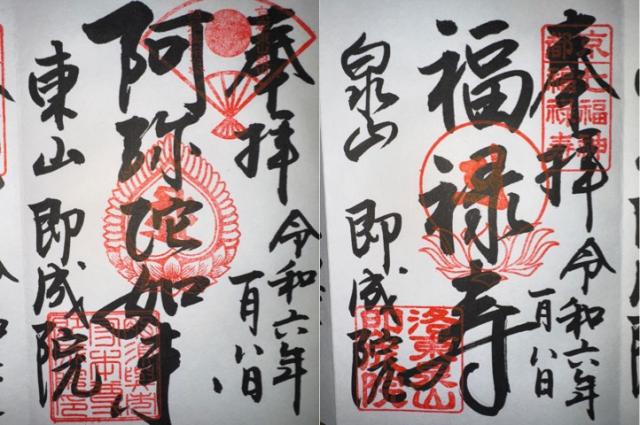 奉拝
令和六年
一月八日
阿弥陀如来
東山 即成院
奉拝
令和六年
一月八日
福禄寿
泉山 即成院